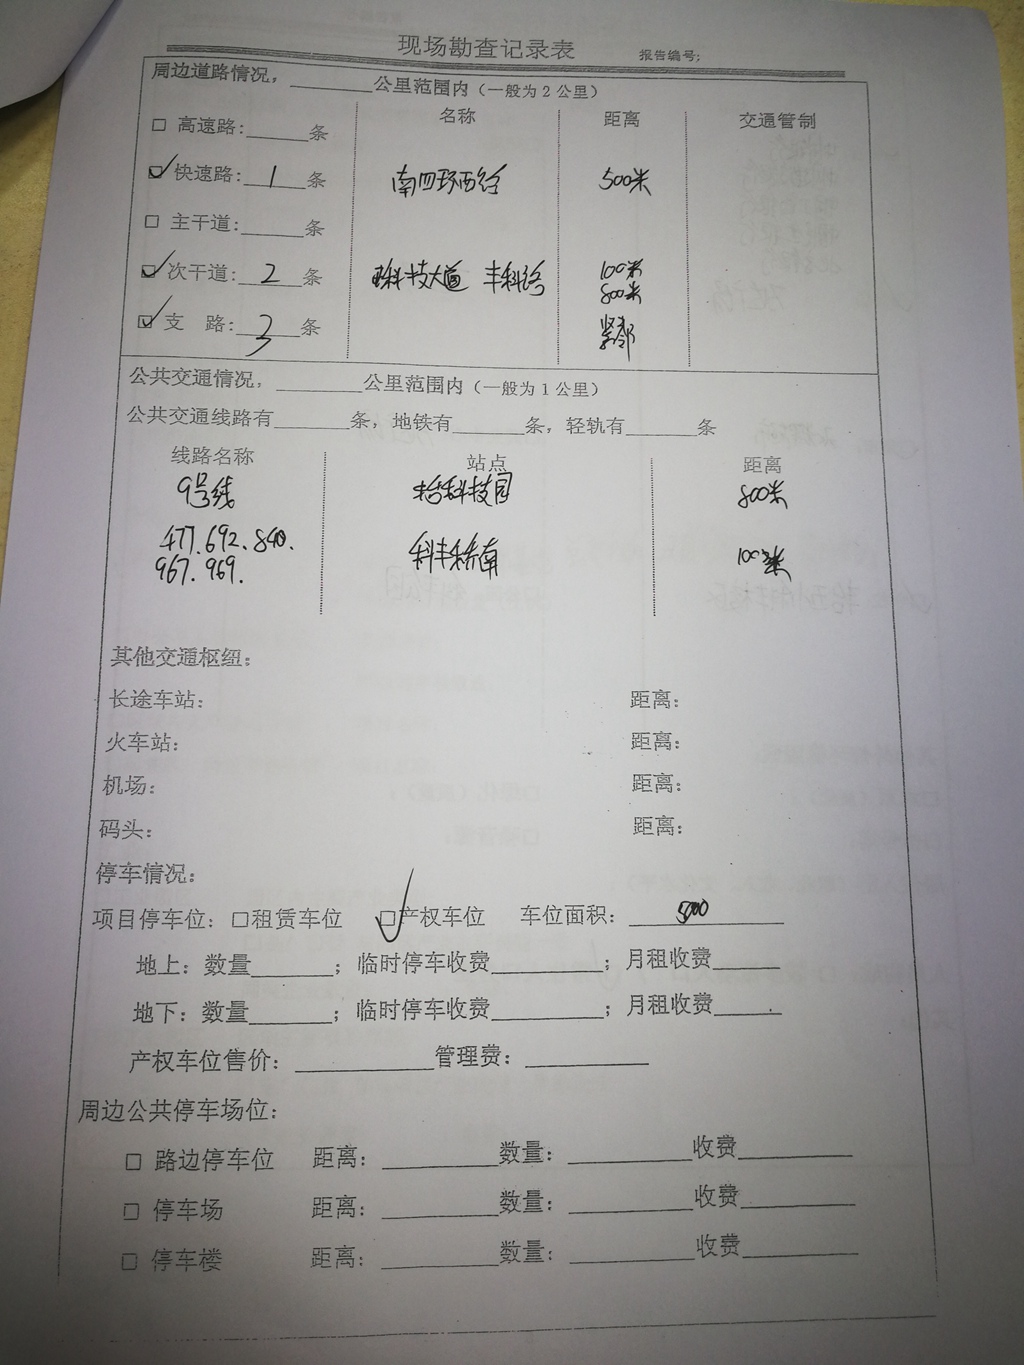 现场勘查记录表 报告编号:
周边道路情况，________公里范围内（一般为2公里）
名称 距离 交通管制
□ 高速路:______条
☑ 快速路: 1 条 南四环西路 500米
□ 主干道:______条
☑ 次干道: 2 条 科技大道 丰科路 100米
800米
☑ 支 路: 3 条 紧邻
公共交通情况，________公里范围内（一般为1公里）
公共交通线路有________条，地铁有________条，轻轨有________条
线路名称 站点 距离
9号线 科技园 800米
477. 692. 840. 科丰桥南 100米
967. 969.
其他交通枢纽:
长途车站: 距离:
火车站: 距离:
机场: 距离:
码头: 距离:
停车情况:
项目停车位: □租赁车位 ☑产权车位 车位面积: 500
地上: 数量________; 临时停车收费________; 月租收费________
地下: 数量________; 临时停车收费________; 月租收费________
产权车位售价: ________管理费: ________
周边公共停车场位:
□ 路边停车位 距离: ________数量: ________收费________
□ 停车场 距离: ________数量: ________收费________
□ 停车楼 距离: ________数量: ________收费________